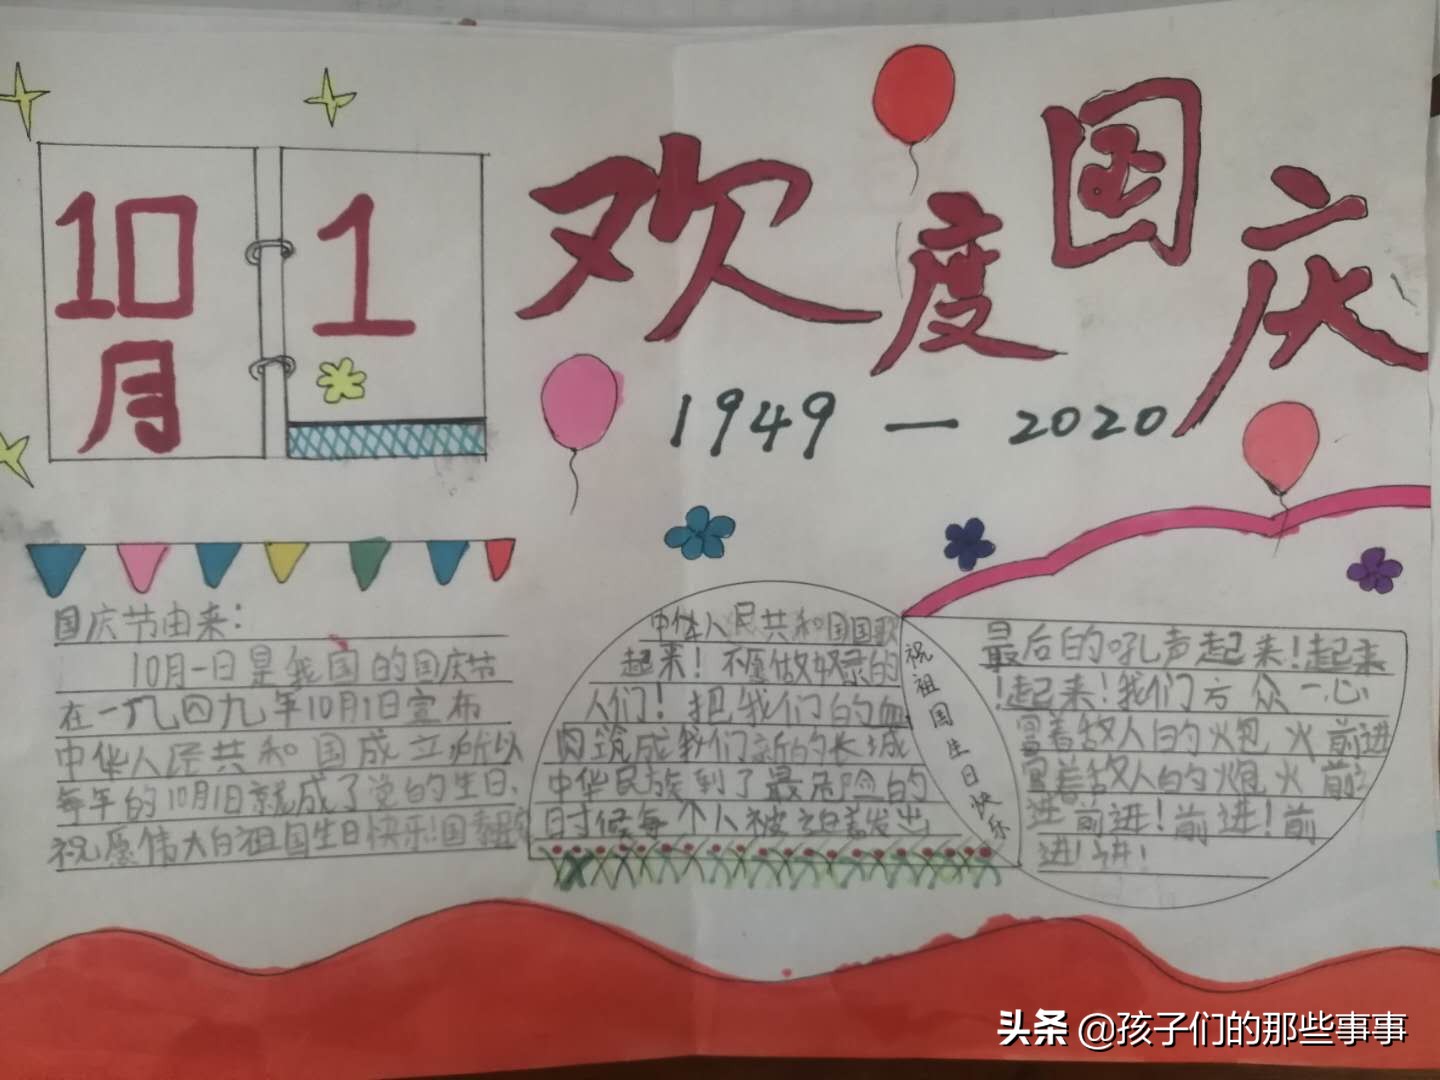 10月
1
欢度国庆
1949—2020
国庆节由来:
10月一日是我国的国庆节
在一九四九年10月1日宣布
中华人民共和国成立所以
每年的10月1日就成了党的生日,
祝愿伟大白祖国生日快乐!国泰
中华人民共和国国歌
起来!不愿做奴隶的
人们!把我们的血
肉筑成我们新的长城
中华民族到了最危险的
时候每个人被迫着发出
祝祖国生日快乐
最后的吼声起来!起来
!起来!我们万众一心
冒着敌人的炮火前进
冒着敌人的炮火前
进前进!前进!前
进!进!
头条 @孩子们的那些事事